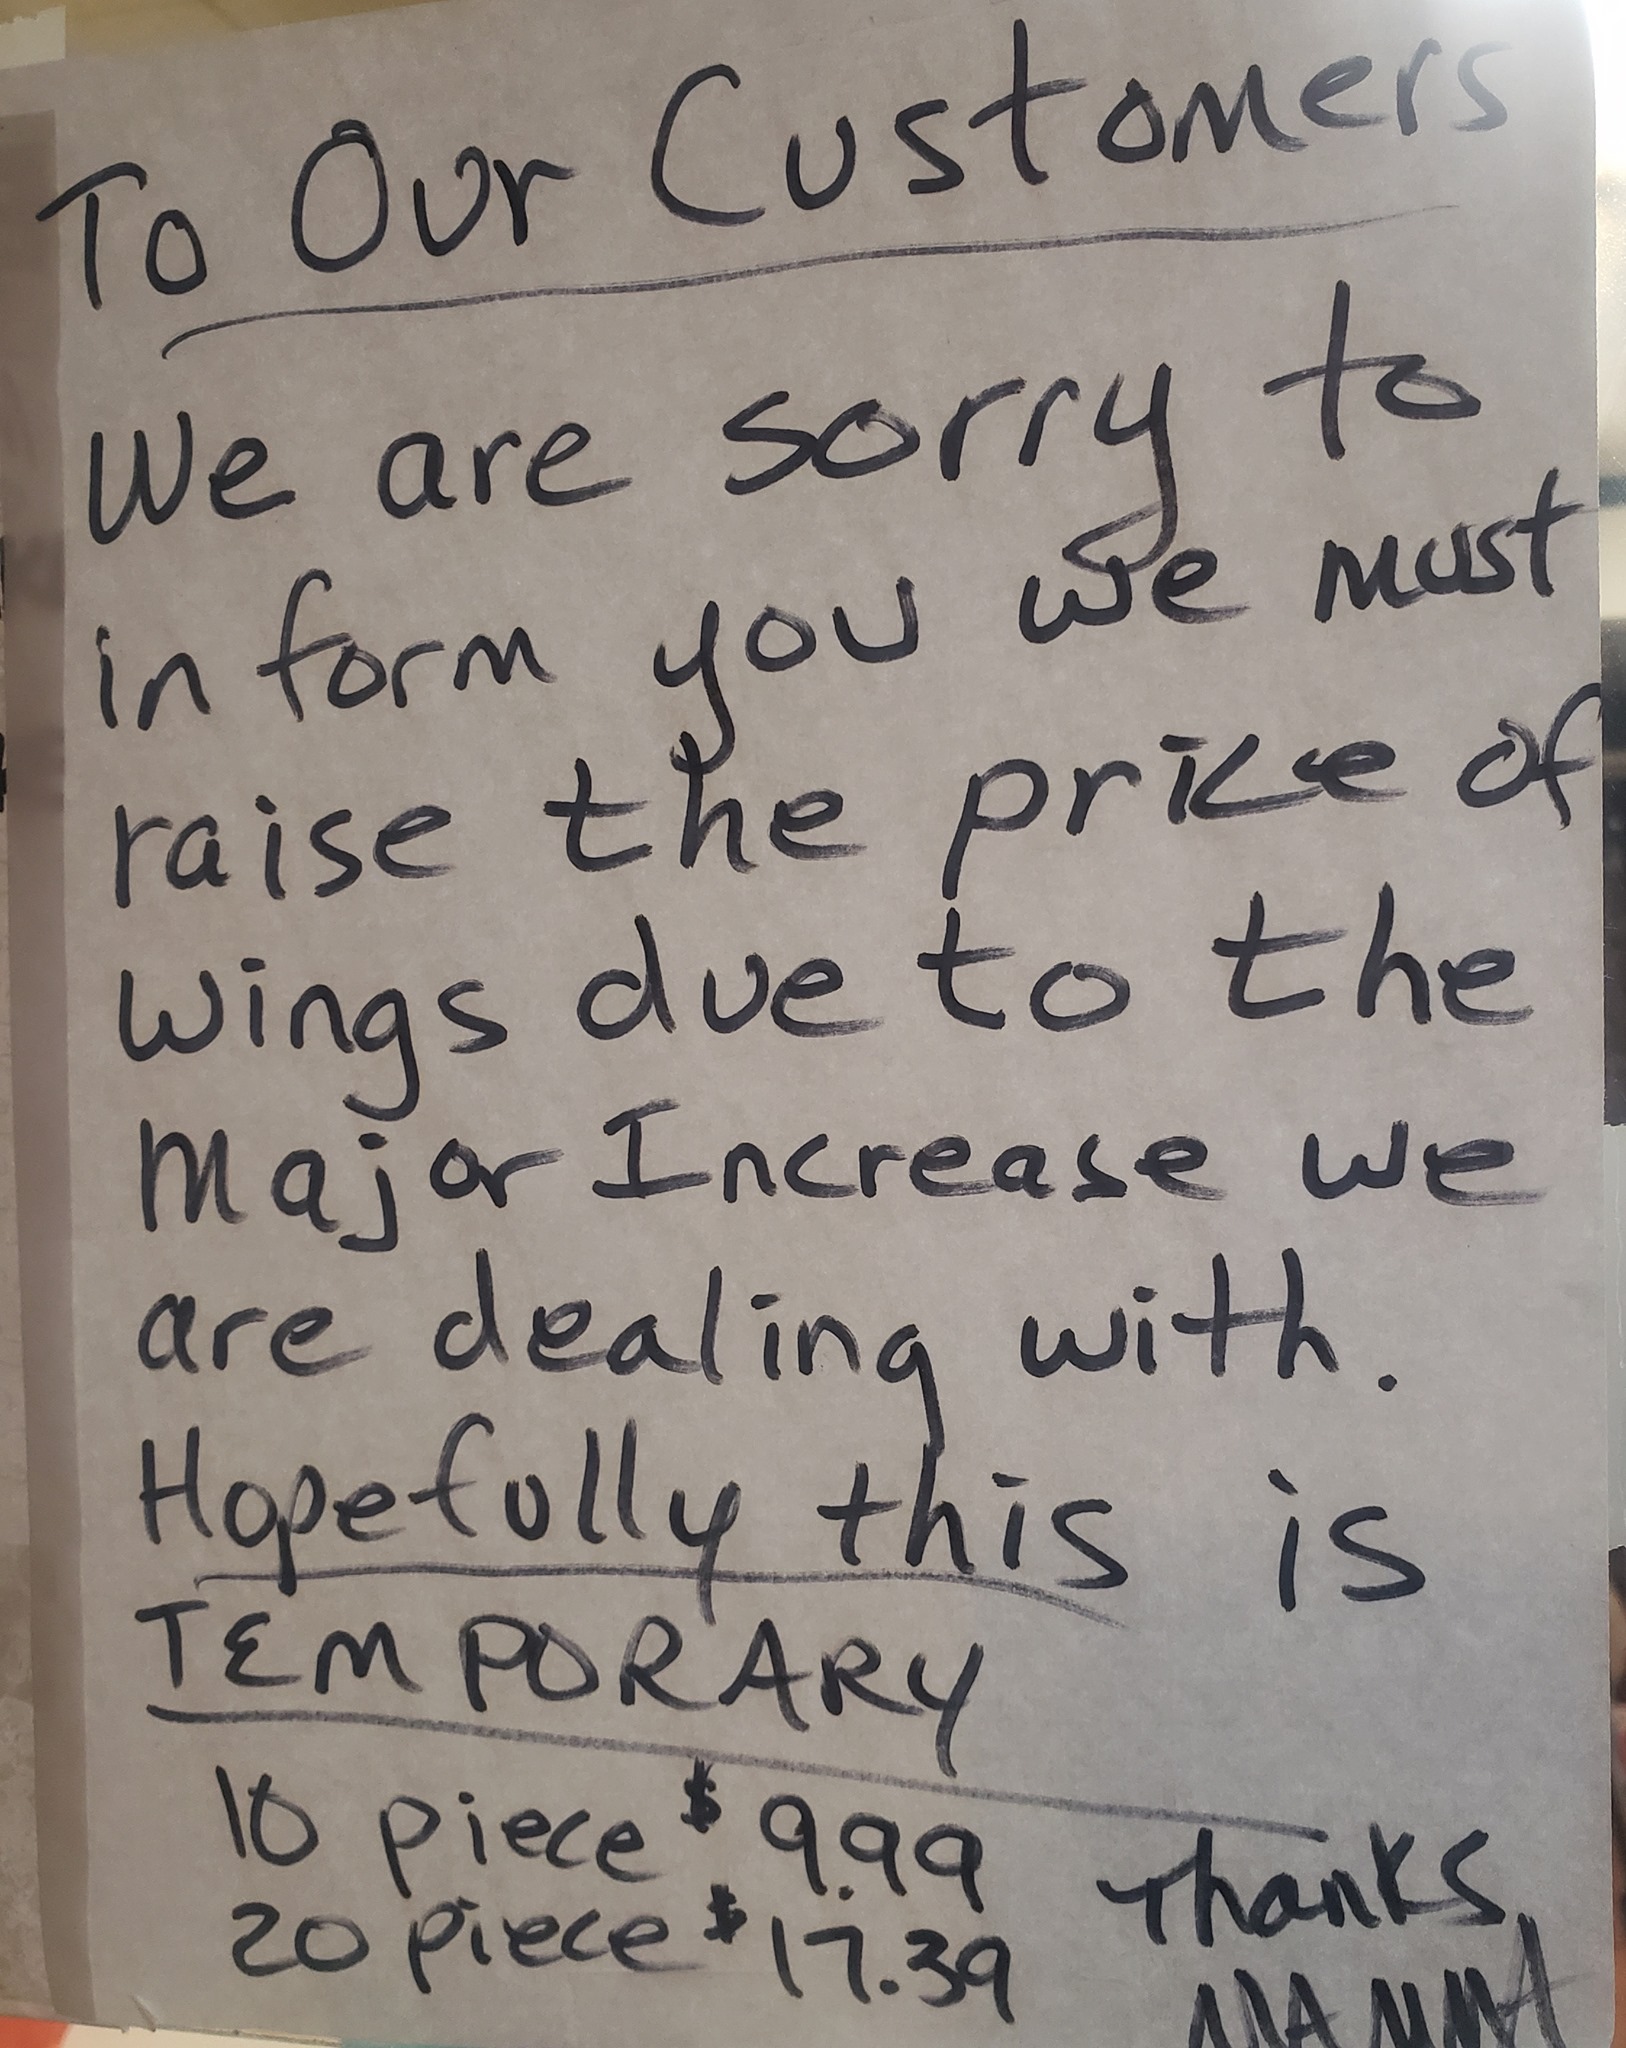 To Our Customers
We are sorry to
inform you we must
raise the price of
wings due to the
Major Increase we
are dealing with.
Hopefully this is
TEMPORARY
10 piece $9.99
20 piece $17.39
Thanks,